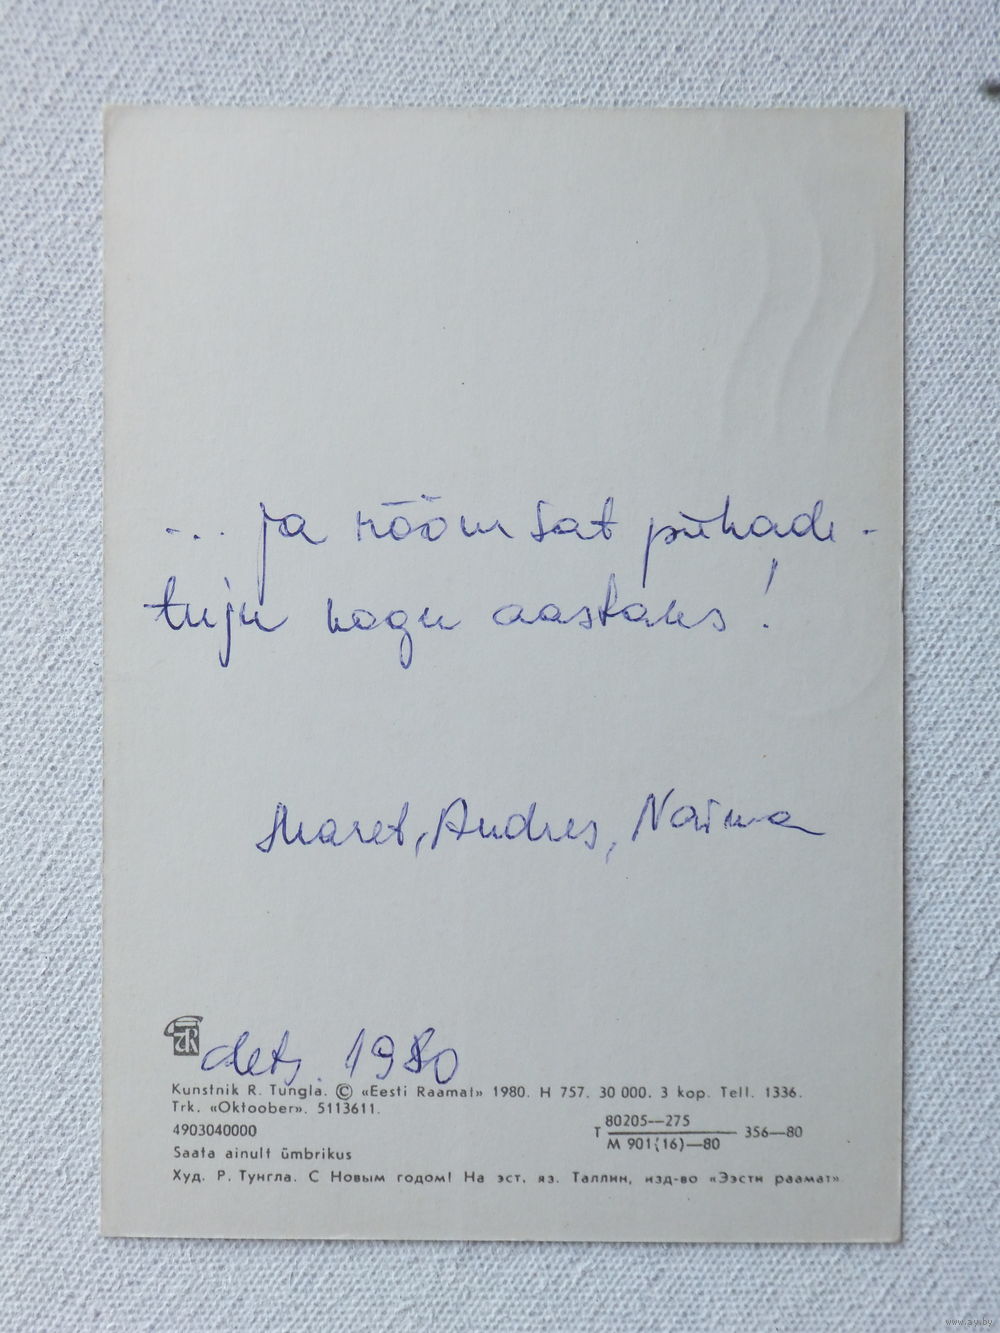 ... ja rõõmsat pühade-
tuju kogu aastaks!
Maret, Andres, Naima
dets. 1980
Kunstnik R. Tungla. © «Eesti Raamat» 1980. H 757. 30 000. 3 kop. Tell. 1336.
Trk. «Oktoober». 5113611.
4903040000
T 80205—275 / M 901(16)—80 356—80
Saata ainult ümbrikus
Худ. Р. Тунгла. С Новым годом! На эст. яз. Таллин, изд-во «Ээсти раамат»
www.ay.by